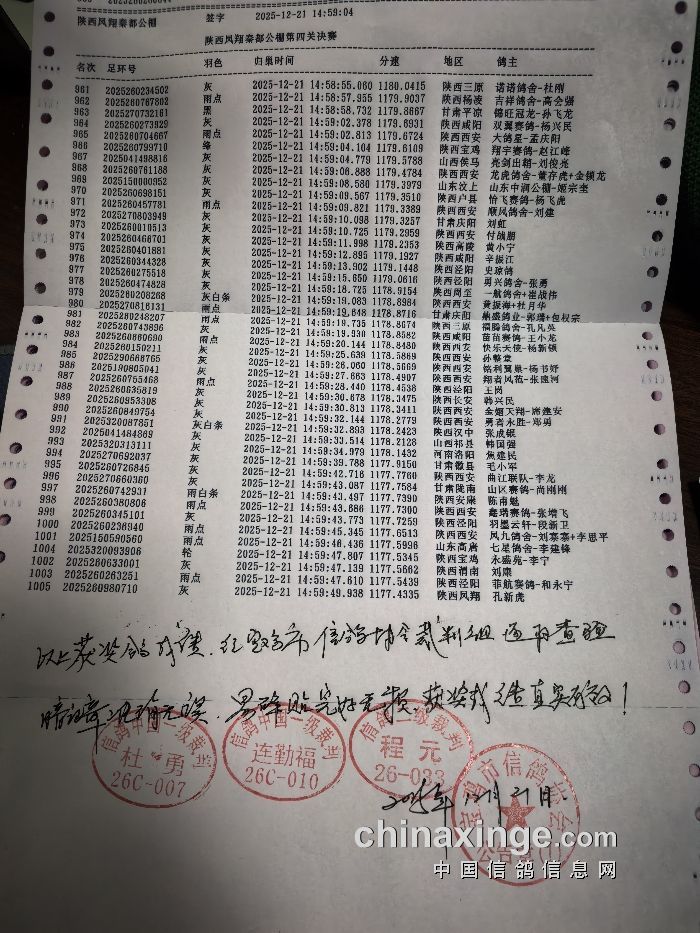 陕西凤翔秦都公棚 签字 2025-12-21 14:59:04
陕西凤翔秦都公棚第四关决赛
名次 足环号 羽色 归巢时间 分速 地区 鸽主
961 2025260234502 灰 2025-12-21 14:58:55.060 1180.0415 陕西三原 诺诺鸽舍-杜刚
962 2025260767802 雨点 2025-12-21 14:58:57.955 1179.9037 陕西杨凌 吉祥鸽舍-高会强
963 2025270732161 黑 2025-12-21 14:58:58.732 1179.8667 甘肃平凉 锦旺冠龙-孙飞龙
964 2025260273929 灰 2025-12-21 14:59:02.378 1179.6931 陕西咸阳 双翼赛鸽-杨兴民
965 2025260704667 雨点 2025-12-21 14:59:02.813 1179.6724 陕西西安 大鸽星-孟庆阳
966 2025260799710 绛 2025-12-21 14:59:04.104 1179.6109 陕西宝鸡 翔宇赛鸽-赵江峰
967 2025041498816 灰 2025-12-21 14:59:04.779 1179.5788 山西侯马 亮剑出鞘-刘俊亮
968 2025260761188 灰 2025-12-21 14:59:06.888 1179.4784 陕西西安 龙虎鸽舍-董存虎+金锁龙
969 2025150000952 灰 2025-12-21 14:59:08.580 1179.3979 山东汶上 山东中润公棚-姬宗奎
970 2025260698151 灰 2025-12-21 14:59:09.567 1179.3510 陕西户县 怡飞赛鸽-杨飞虎
971 2025260457781 雨点 2025-12-21 14:59:09.821 1179.3389 陕西西安 顺风鸽舍-刘建
972 2025270803949 灰 2025-12-21 14:59:10.098 1179.3257 甘肃庆阳 刘虹
973 2025260010513 灰 2025-12-21 14:59:10.725 1179.2959 陕西西安 付战朋
974 2025260466701 灰 2025-12-21 14:59:11.998 1179.2353 陕西高陵 黄小宁
975 2025260401881 灰 2025-12-21 14:59:12.895 1179.1927 陕西咸阳 辛振江
976 2025260344328 灰 2025-12-21 14:59:13.902 1179.1448 陕西泾阳 史琼鸽
977 2025260275518 灰 2025-12-21 14:59:15.650 1179.0616 陕西泾阳 勇兴鸽舍-张勇
978 2025260474828 灰 2025-12-21 14:59:18.725 1178.9154 陕西周至 一航鸽舍+崔战伟
979 2025260208268 灰白条 2025-12-21 14:59:19.083 1178.8984 陕西西安 黄振海+杜月华
980 2025270816131 雨点 2025-12-21 14:59:19.648 1178.8716 甘肃庆阳 鼎盛鸽业-郭瑞+包权宗
981 2025260248207 雨点 2025-12-21 14:59:19.735 1178.8674 陕西三原 福腾鸽舍-孔凡英
982 2025260743896 灰 2025-12-21 14:59:19.930 1178.8582 陕西咸阳 苗苗赛鸽-王小龙
983 2025260860690 雨点 2025-12-21 14:59:20.144 1178.8480 陕西西安 快乐天使-杨新锁
984 2025260150211 灰 2025-12-21 14:59:25.639 1178.5869 陕西西安 孙整堂
985 2025290688765 灰 2025-12-21 14:59:26.060 1178.5669 陕西西安 铭利翼巢-杨书妤
986 2025190805041 灰 2025-12-21 14:59:27.663 1178.4907 陕西西安 翔者风范-张胜河
987 2025260755468 雨点 2025-12-21 14:59:28.440 1178.4538 陕西泾阳 王岗
988 2025260635819 灰 2025-12-21 14:59:30.078 1178.3475 陕西长安 韩兴民
989 2025260953308 灰 2025-12-21 14:59:30.813 1178.3411 陕西西安 金翅天翔-席建安
990 2025260849754 灰 2025-12-21 14:59:32.144 1178.2779 陕西西安 勇者永胜-郑勇
991 2025320087851 灰白条 2025-12-21 14:59:32.893 1178.2423 陕西汉中 张成银
992 2025041484869 灰 2025-12-21 14:59:33.514 1178.2128 山西祁县 韩国强
993 2025320313111 灰 2025-12-21 14:59:34.979 1178.1432 河南洛阳 焦建民
994 2025270692037 灰 2025-12-21 14:59:39.788 1177.9150 甘肃徽县 毛小军
995 2025260726845 灰 2025-12-21 14:59:42.716 1177.7760 陕西西安 曲江联队-李龙
996 2025270660360 灰 2025-12-21 14:59:43.087 1177.7584 甘肃陇南 山区赛鸽-尚刚刚
997 2025260742931 雨白条 2025-12-21 14:59:43.497 1177.7390 陕西安康 陈南魁
998 2025260360806 雨点 2025-12-21 14:59:43.686 1177.7300 陕西西安 鑫瑞赛鸽-张增飞
999 2025260345101 灰 2025-12-21 14:59:43.773 1177.7259 陕西泾阳 羽墨云轩-段新卫
1000 2025260236940 雨点 2025-12-21 14:59:45.346 1177.6513 陕西西安 风九鸽舍-刘寨寨+李思平
1001 2025150590560 雨点 2025-12-21 14:59:46.436 1177.5996 山东高唐 七星鸽舍-李建锋
1004 2025320093906 轮 2025-12-21 14:59:47.807 1177.5345 陕西宝鸡 永盛苑-李宁
1002 2025260633001 灰 2025-12-21 14:59:47.139 1177.5662 陕西渭南 刘康
1003 2025260263251 雨点 2025-12-21 14:59:47.610 1177.5439 陕西泾阳 菲航赛鸽-和永宁
1005 2025260980710 灰 2025-12-21 14:59:49.938 1177.4335 陕西凤翔 孔新虎
以上获奖鸽成绩,经宝鸡市信鸽协会裁判组逐羽查验
暗章准确无误,票碎贴完好无损,获奖成绩真实有效!
信鸽中国一级裁判 杜勇 26C-007
信鸽中国一级裁判 连勤福 26C-010
信鸽中国二级裁判 程元 26-033
宝鸡市信鸽协会
2025年12月21日
chinaxinge.com
中国信鸽信息网